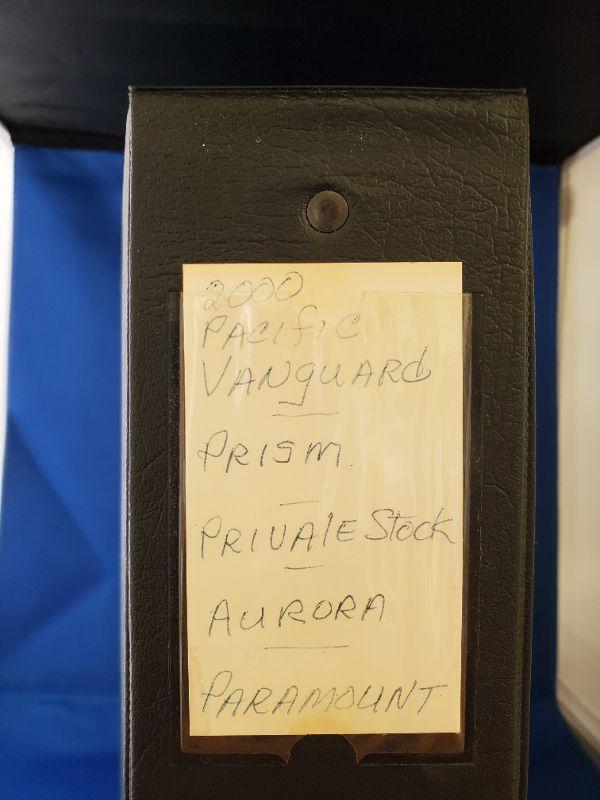 2000
PACIFIC
VANGUARD
PRISM.
PRIVATE Stock
AURORA
PARAMOUNT